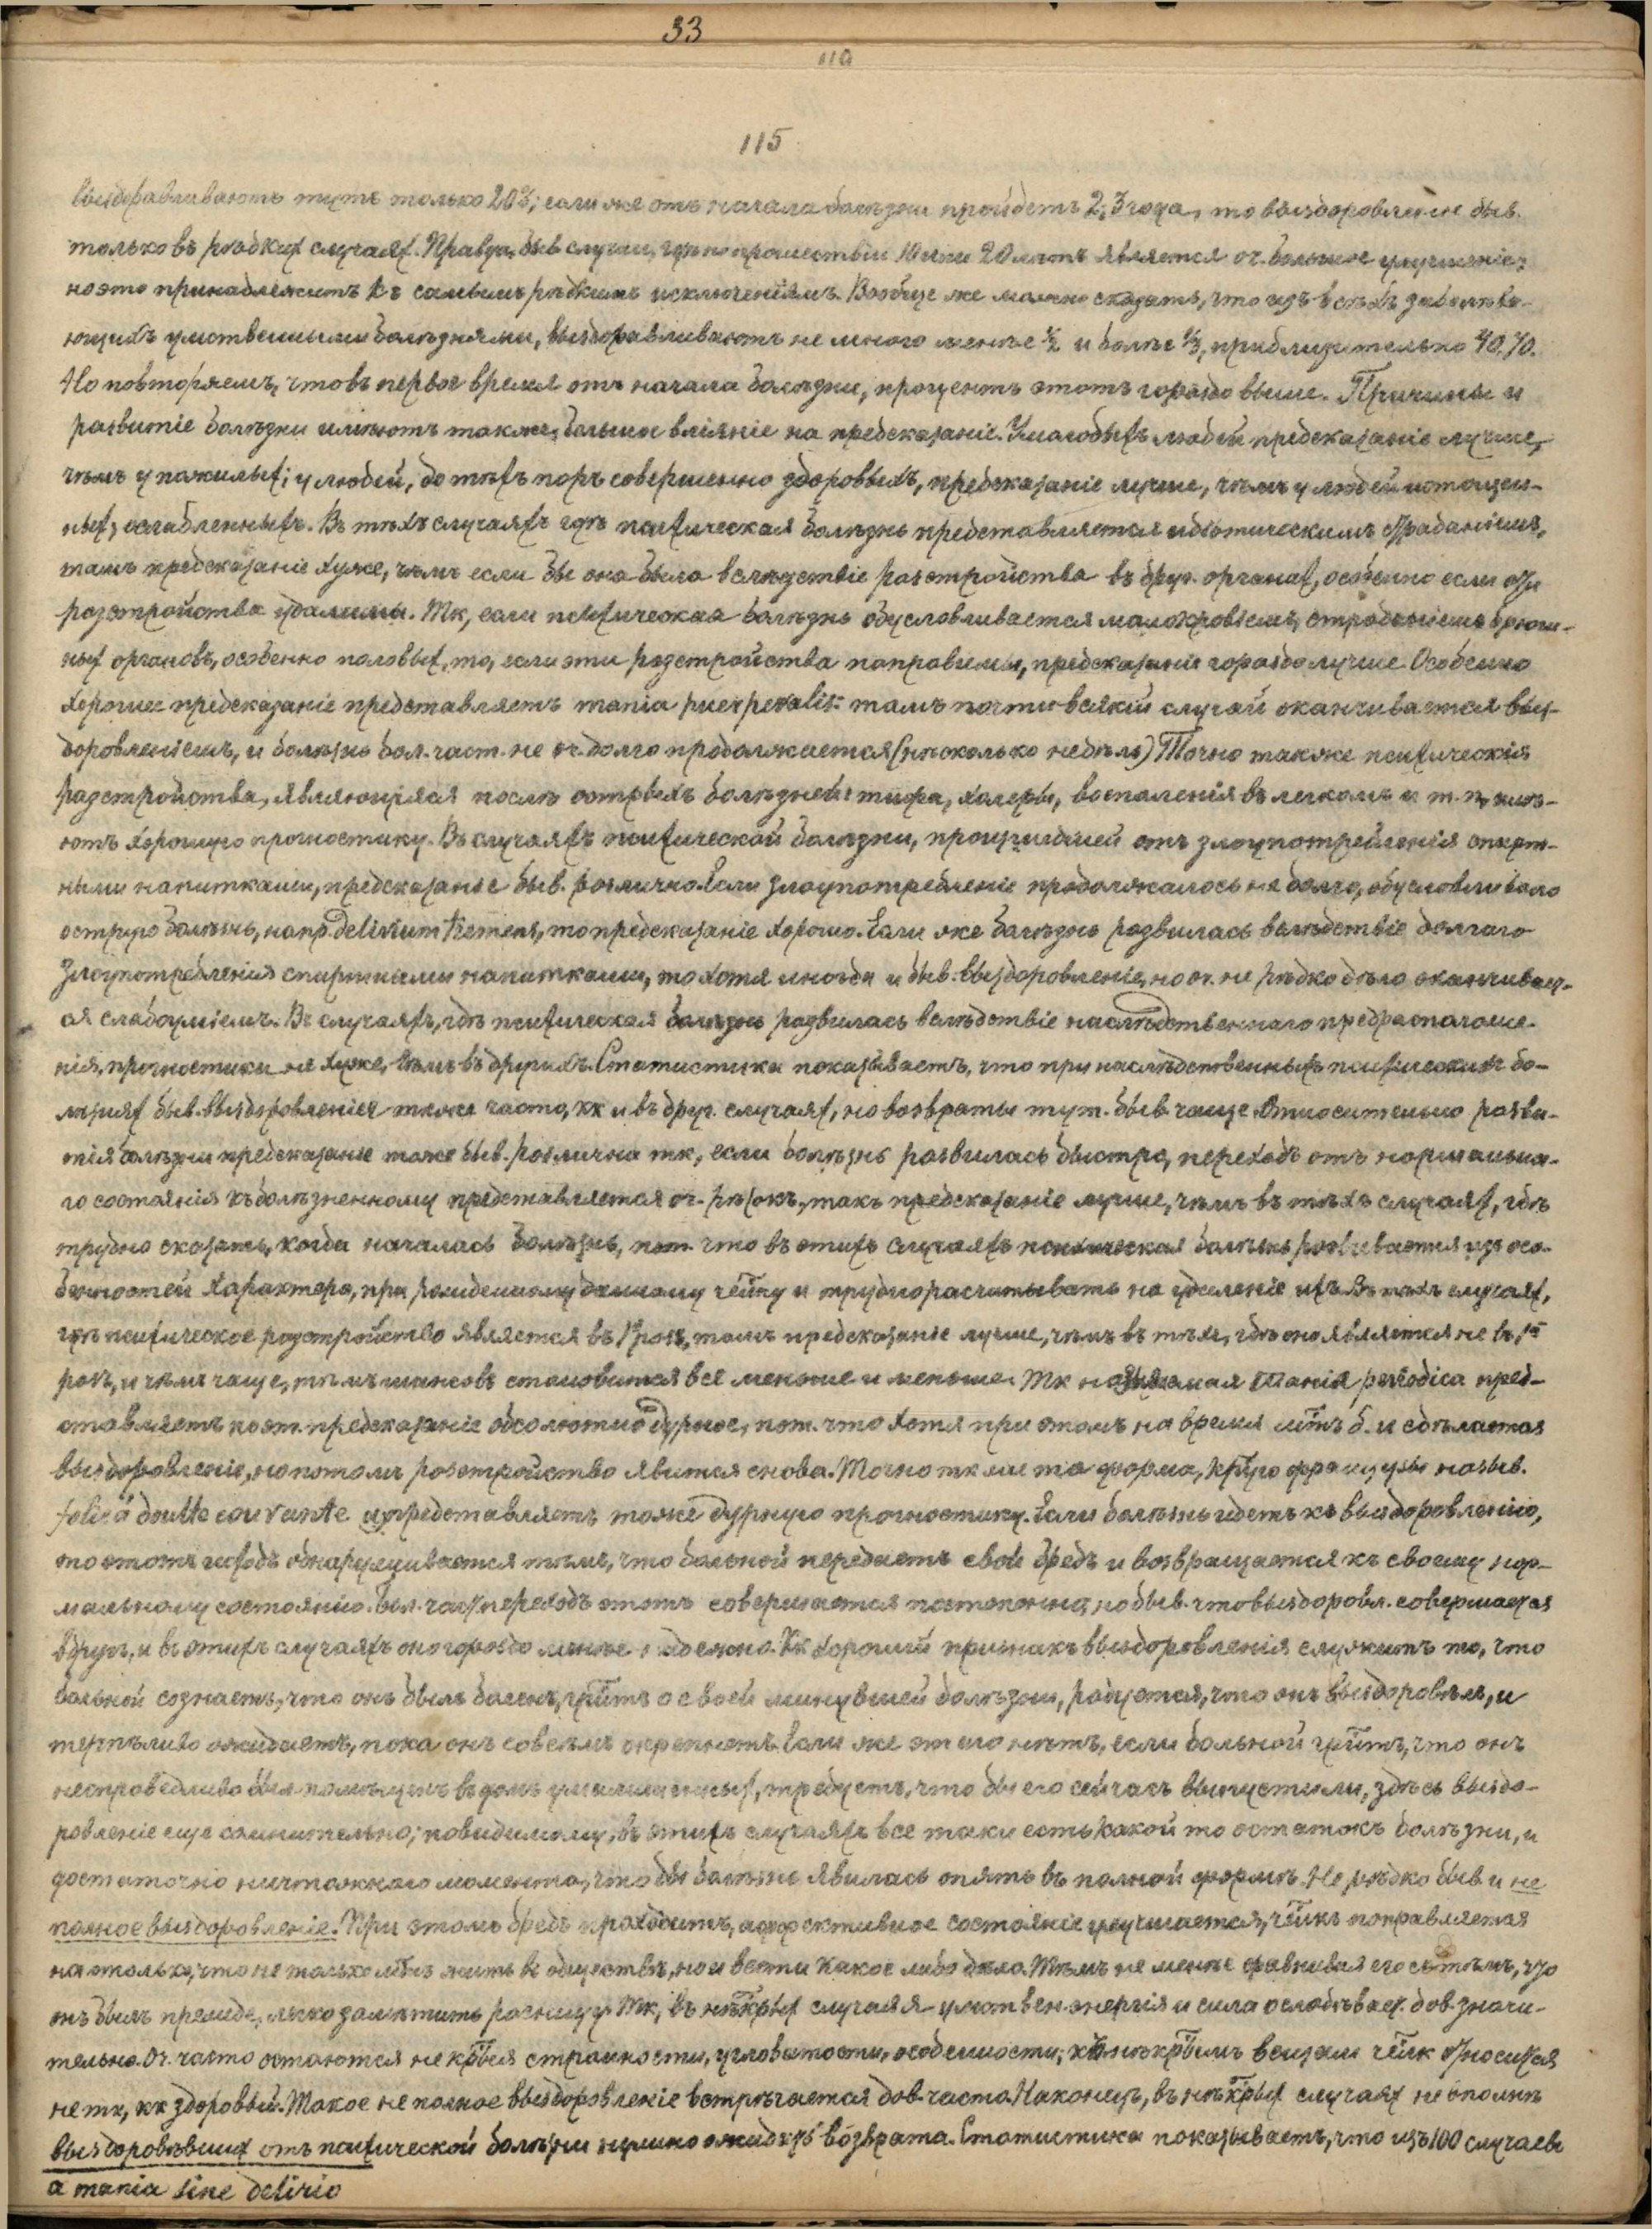 33
110
115
выздоравливаютъ тутъ только 20%; если же отъ начала болѣзни пройдетъ 2, 3 года, то выздоровленіе быв.
только въ рѣдких случаях. Правда, быв случаи, гдѣ по прошествіи 10 или 20 лѣтъ является оч. большое улучшеніе;
но это принадлежитъ къ самымъ рѣдкимъ исключеніямъ. Вообще же можно сказать, что изъ всѣхъ заболѣва-
ющихъ умственными болѣзнями, выздоравливаютъ не много менѣе ½ и болѣе ⅓, приблизительно 40%.
Но повторяемъ, что въ первое время отъ начала болѣзни, процентъ этотъ гораздо выше. Причины и
развитіе болѣзни имѣютъ также большое вліяніе на предсказаніе. У молодыхъ людей предсказаніе лучше,
чѣмъ у пожилых; у людей, до тѣхъ поръ совершенно здоровыхъ, предсказаніе лучше, чѣмъ у людей истощен-
ных, ослабленныхъ. Въ тѣхъ случаяхъ гдѣ психическая болѣзнь представляется идіопатическимъ страданіемъ,
тамъ предсказаніе хуже, чѣмъ если бы она была вслѣдствіе разстройства въ друг. органах, особенно если эти
разстройства удалимы. Тк, если психическая болѣзнь обусловливается малокровіемъ, страданіемъ брюш-
ных органовъ, особенно половых, то, если эти разстройства поправимы, предсказаніе гораздо лучше. Особенно
хорошее предсказаніе представляетъ mania puerperalis: тамъ почти всякій случай оканчивается выз-
доровленіемъ, и болѣзнь бол. част. не оч. долго продолжается (нѣсколько недѣль) Точно также психическія
разстройства, являющіяся послѣ острыхъ болѣзней: тифа, холеры, воспаленія въ легкомъ и т. п, имѣ-
ютъ хорошую прогностику. Въ случаяхъ психической болѣзни, происшедшей отъ злоупотребленія спирт-
ными напитками, предсказаніе быв. различно. Если злоупотребленіе продолжалось не долго, обусловливало
острую болѣзнь, напр. delirium tremens, то предсказаніе хорошо. Если же болѣзнь развилась вслѣдствіе долгаго
злоупотребленія спиртными напитками, то хотя иногда и быв. выздоровленіе, но оч. не рѣдко дѣло оканчивает-
ся слабоуміемъ. Въ случаяхъ, гдѣ психическая болѣзнь развилась вслѣдствіе наслѣдственнаго предрасположе-
нія, прогностика не хуже, чѣмъ въ другихъ. Статистика показываетъ, что при наслѣдственныхъ психическихъ бо-
лѣзнях быв. выздоровленіе также часто, кк и въ друг. случаях, но возвраты тут. быв. чаще. Относительно разви-
тія болѣзни предсказаніе тоже быв. различна тк, если болѣзнь развилась быстро, переходъ отъ нормальна-
го состоянія къ болѣзненному представляется оч. рѣзокъ, такъ предсказаніе лучше, чѣмъ въ тѣхъ случаях, гдѣ
трудно сказать, когда началась болѣзнь, пот. что въ этихъ случаяхъ психическая болѣзнь развивается изъ осо-
бенностей характера, при рожденному данному чѣлку и трудно расчитывать на удаленіе ихъ. Въ тѣхъ случаях,
гдѣ психическое разстройство является въ 1й разъ, тамъ предсказаніе лучше, чѣмъ въ тѣхъ, гдѣ оно является не въ 1й
разъ, и чѣмъ чаще, тѣмъ шансовъ становится все меньше и меньше. Тк называемая mania periodica пред-
ставляетъ предсказаніе абсолютно дурное, пот. что хотя при этомъ на время м̅тъ б. и сдѣлается
выздоровленіе, но потомъ разстройство явится снова. Точно тк же та форма, кт̅рую французы назыв.
folie à double couvante представляетъ тоже дурную прогностику. Если болѣзнь идетъ къ выздоровленію,
то этотъ исходъ обнаруживается тѣмъ, что больной передаетъ свой бредъ и возвращается къ своему нор-
мальному состоянію. Бол. част переходъ этотъ совершается постепенно, но быв. что выздоровл. совершается
вдругъ, и въ этихъ случаяхъ оно гораздо менѣе надежно. Кк хорошій признакъ выздоровленія служитъ то, что
больной сознаетъ, что онъ былъ боленъ, гр̅итъ о своей минувшей болѣзни, радуется, что онъ выздоровѣлъ, и
терпѣливо ожидаетъ, пока онъ совсѣмъ окрепнетъ. Если же этого нѣтъ, если больной гр̅итъ, что онъ
несправедливо был помѣщенъ въ домъ умалишенных, требуетъ, что бы его сейчасъ выпустили, здѣсь выздо-
ровленіе еще сомнительно; повидимому, въ этихъ случаяхъ все таки есть какой то остатокъ болѣзни, и
достаточно ничтожнаго момента, что бы болѣзнь явилась опять въ полной формѣ. Не рѣдко быв. и не
полное выздоровленіе. При этомъ бредъ проходитъ, аффективное состояніе улучшается, чл̅къ поправляется
на столько, что не только м̅тъ жить въ обществѣ, но и вести какое либо дѣло. Тѣмъ не менѣе сравнивая его съ тѣмъ, что
онъ былъ прежде, легко замѣтить разницу. Тк, въ нѣкр̅ых случаях умствен. энергія и сила ослабѣвает. дов. значи-
тельно. Оч. часто остаются некр̅ыя странности, угловатости, особенности; къ нѣкр̅ымъ вещамъ чл̅к относится
не тк, кк здоровый. Такое не полное выздоровленіе встрѣчается дов. часто. Наконецъ, въ нѣкр̅ых случаях не вполнѣ
выздоровѣвших отъ психической болѣзни нужно ожидать возврата. Статистика показываетъ, что изъ 100 случаевъ
a mania sine delirio